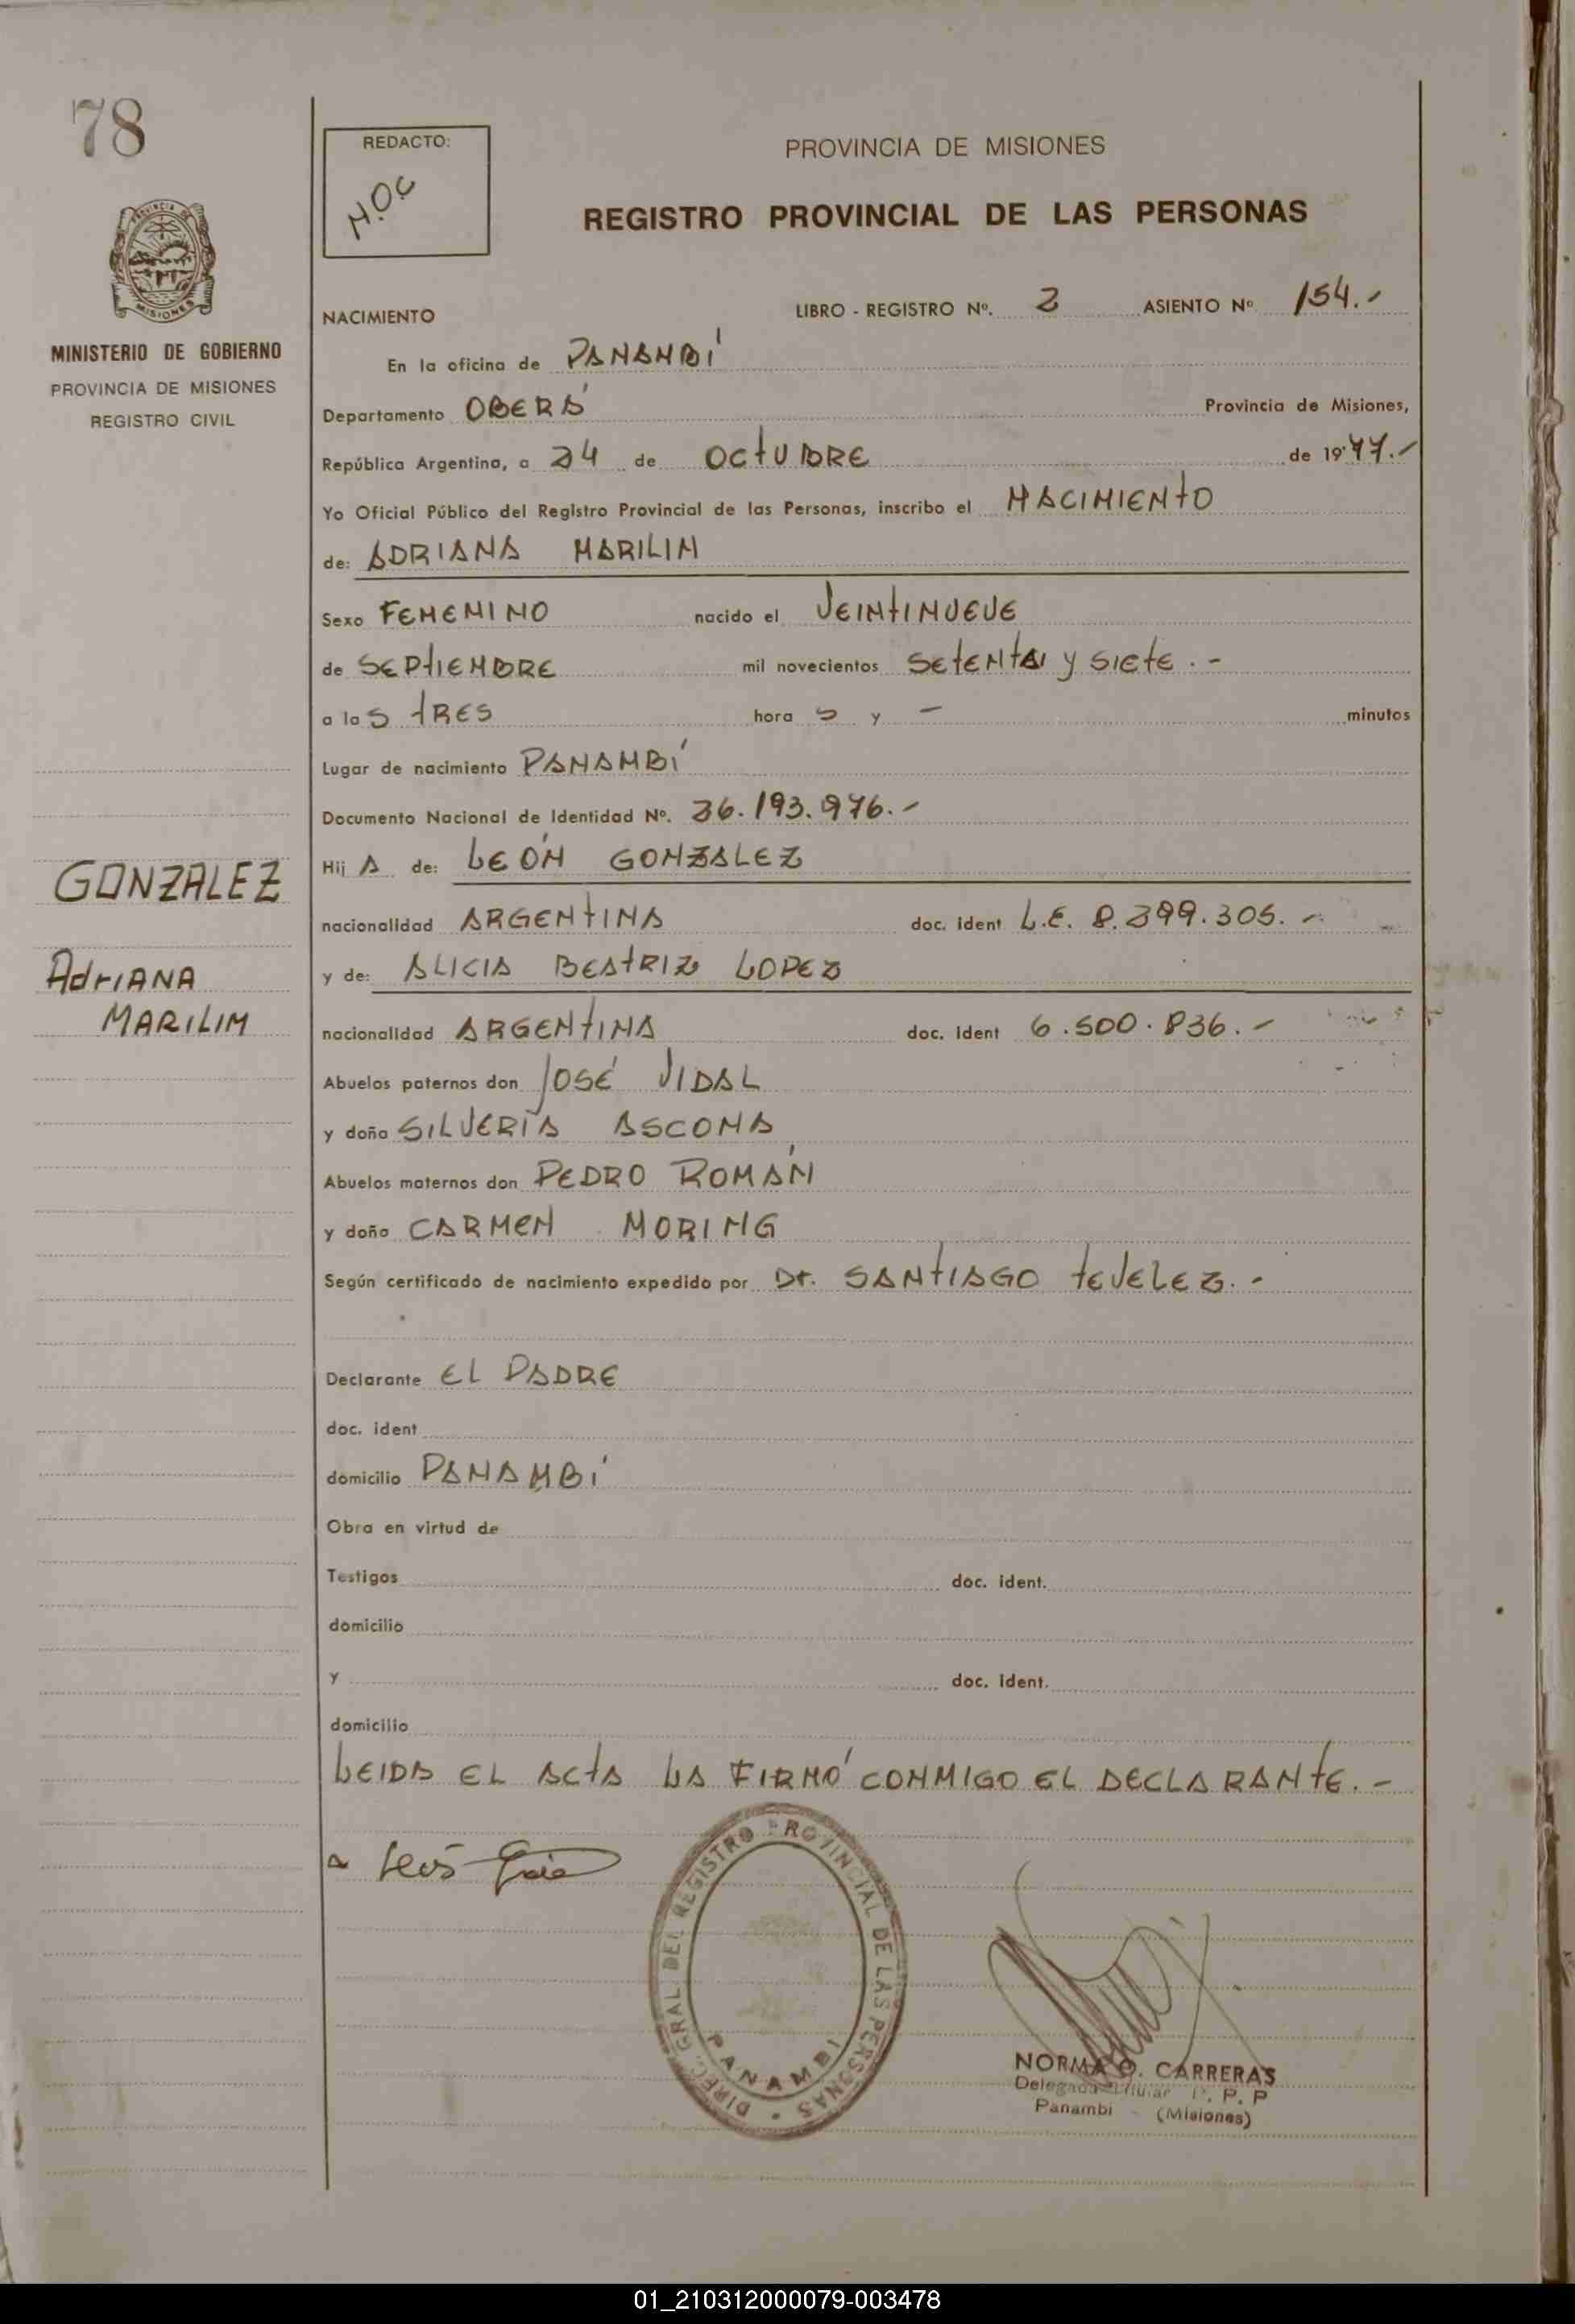 78
REDACTO:
N.O.C
PROVINCIA DE MISIONES
REGISTRO PROVINCIAL DE LAS PERSONAS
PROVINCIA DE MISIONES
MINISTERIO DE GOBIERNO
PROVINCIA DE MISIONES
REGISTRO CIVIL
NACIMIENTO LIBRO - REGISTRO Nº. 2 ASIENTO Nº 154.-
En la oficina de PANAMBÍ
Departamento OBERÁ Provincia de Misiones,
República Argentina, a 24 de OCTUBRE de 1977.-
Yo Oficial Público del Registro Provincial de las Personas, inscribo el NACIMIENTO
de: ADRIANA MARILIM
Sexo FEMENINO nacido el VEINTINUEVE
de SEPTIEMBRE mil novecientos SETENTA y SIETE.-
a las TRES hora S y - minutos
Lugar de nacimiento PANAMBÍ
Documento Nacional de Identidad Nº. 26.193.976.-
Hij A de: LEÓN GONZALEZ
GONZALEZ
nacionalidad ARGENTINA doc. ident L.E. 8.299.305.-
y de: ALICIA BEATRIZ LOPEZ
AdriANA
MARILIM
nacionalidad ARGENTINA doc. ident 6.500.836.-
Abuelos paternos don JOSÉ VIDAL
y doña SILVERIA ASCONA
Abuelos maternos don PEDRO ROMÁN
y doña CARMEN MORING
Según certificado de nacimiento expedido por Dr. SANTIAGO TEVELEZ.-
Declarante EL PADRE
doc. ident
domicilio PANAMBÍ
Obra en virtud de
Testigos doc. ident.
domicilio
y doc. ident.
domicilio
LEIDA EL ACTA LA FIRMÓ CONMIGO EL DECLARANTE.-
DIREC. GRAL. DEL REGISTRO PROVINCIAL DE LAS PERSONAS
PANAMBI
NORMA O. CARRERAS
Delegada Titular P. P
Panambi - (Misiones)
01_210312000079-003478